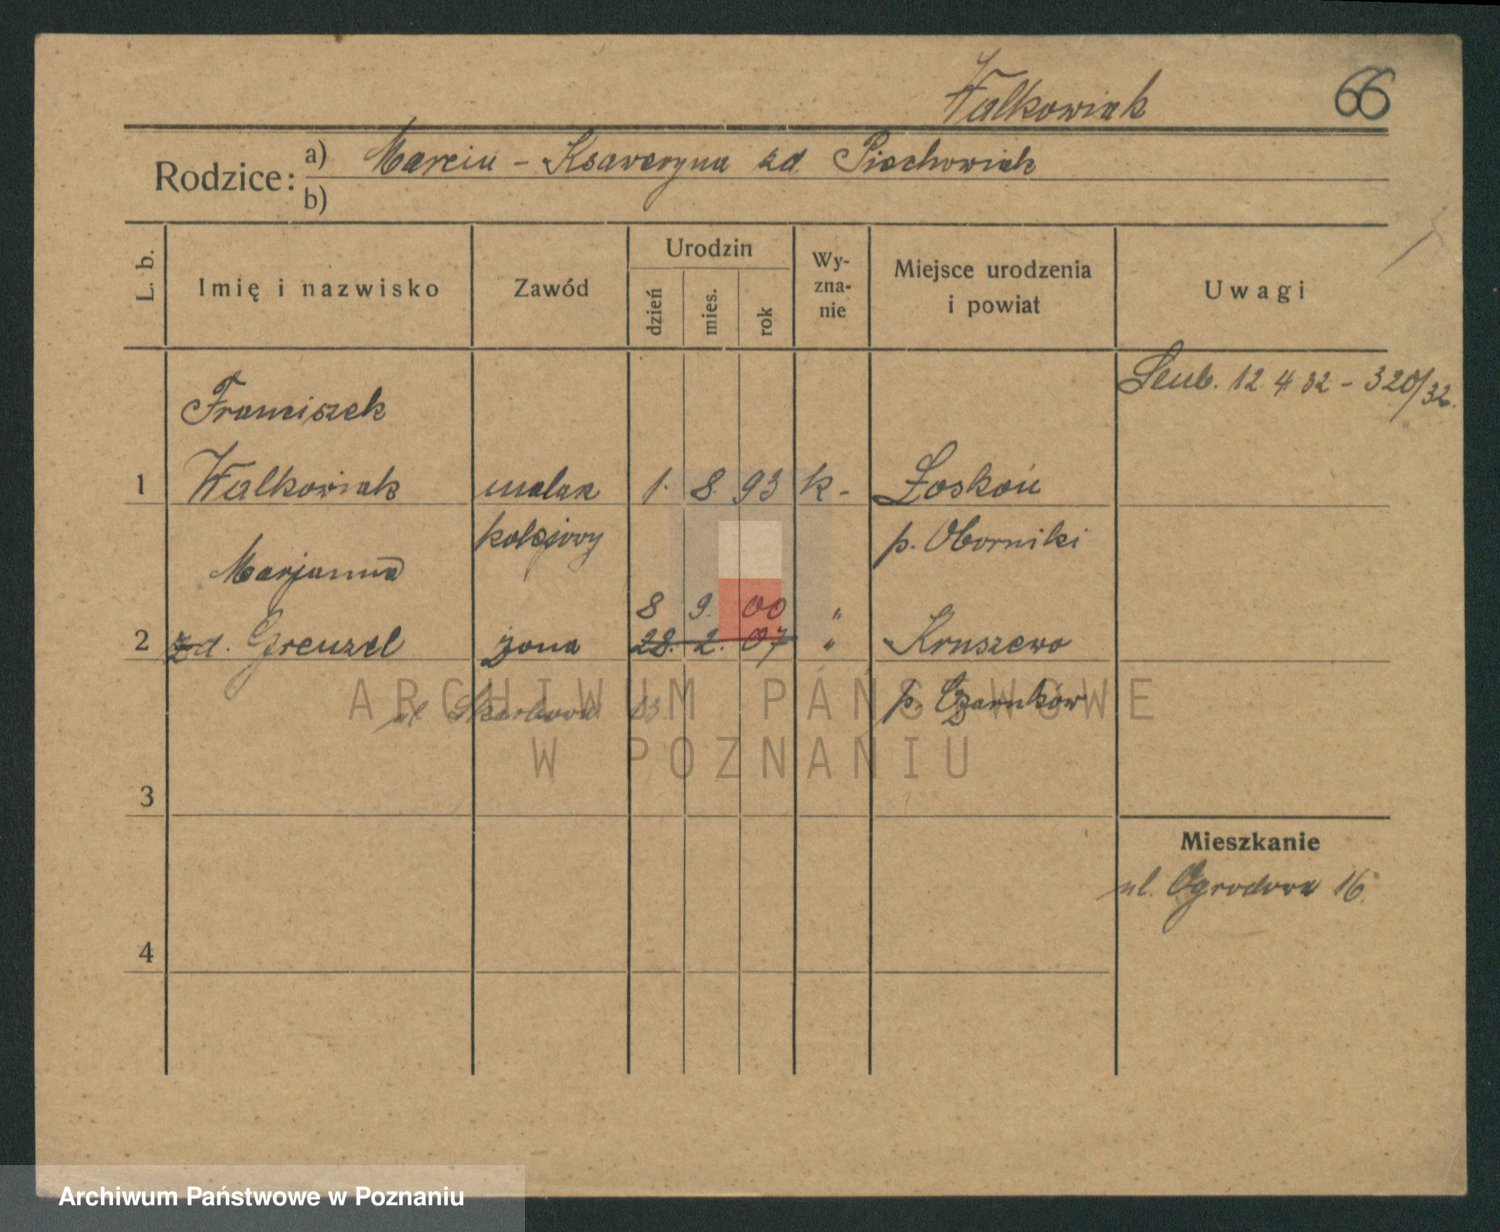 Walkowiak
66
Rodzice:
a) Marcin - Ksaweryna zd. Piechowiak
b)
L. b.
Imię i nazwisko
Zawód
Urodzin
dzień
mies.
rok
Wy-
zna-
nie
Miejsce urodzenia
i powiat
Uwagi
12 4 32 - 320/32.
Franciszek
1 Walkowiak malarz 1. 8. 93 k-
kolejowy p. Oborniki
Marjanna
8 9. 00 "
2 zd. Grenzel żona 28. 2. 07 " Kruszewo
p. Czarnków
ul. Skarbowa 13
ARCHIWUM PAŃSTWOWE
W POZNANIU
3
Mieszkanie
ul. Ogrodowa 16.
4
Archiwum Państwowe w Poznaniu